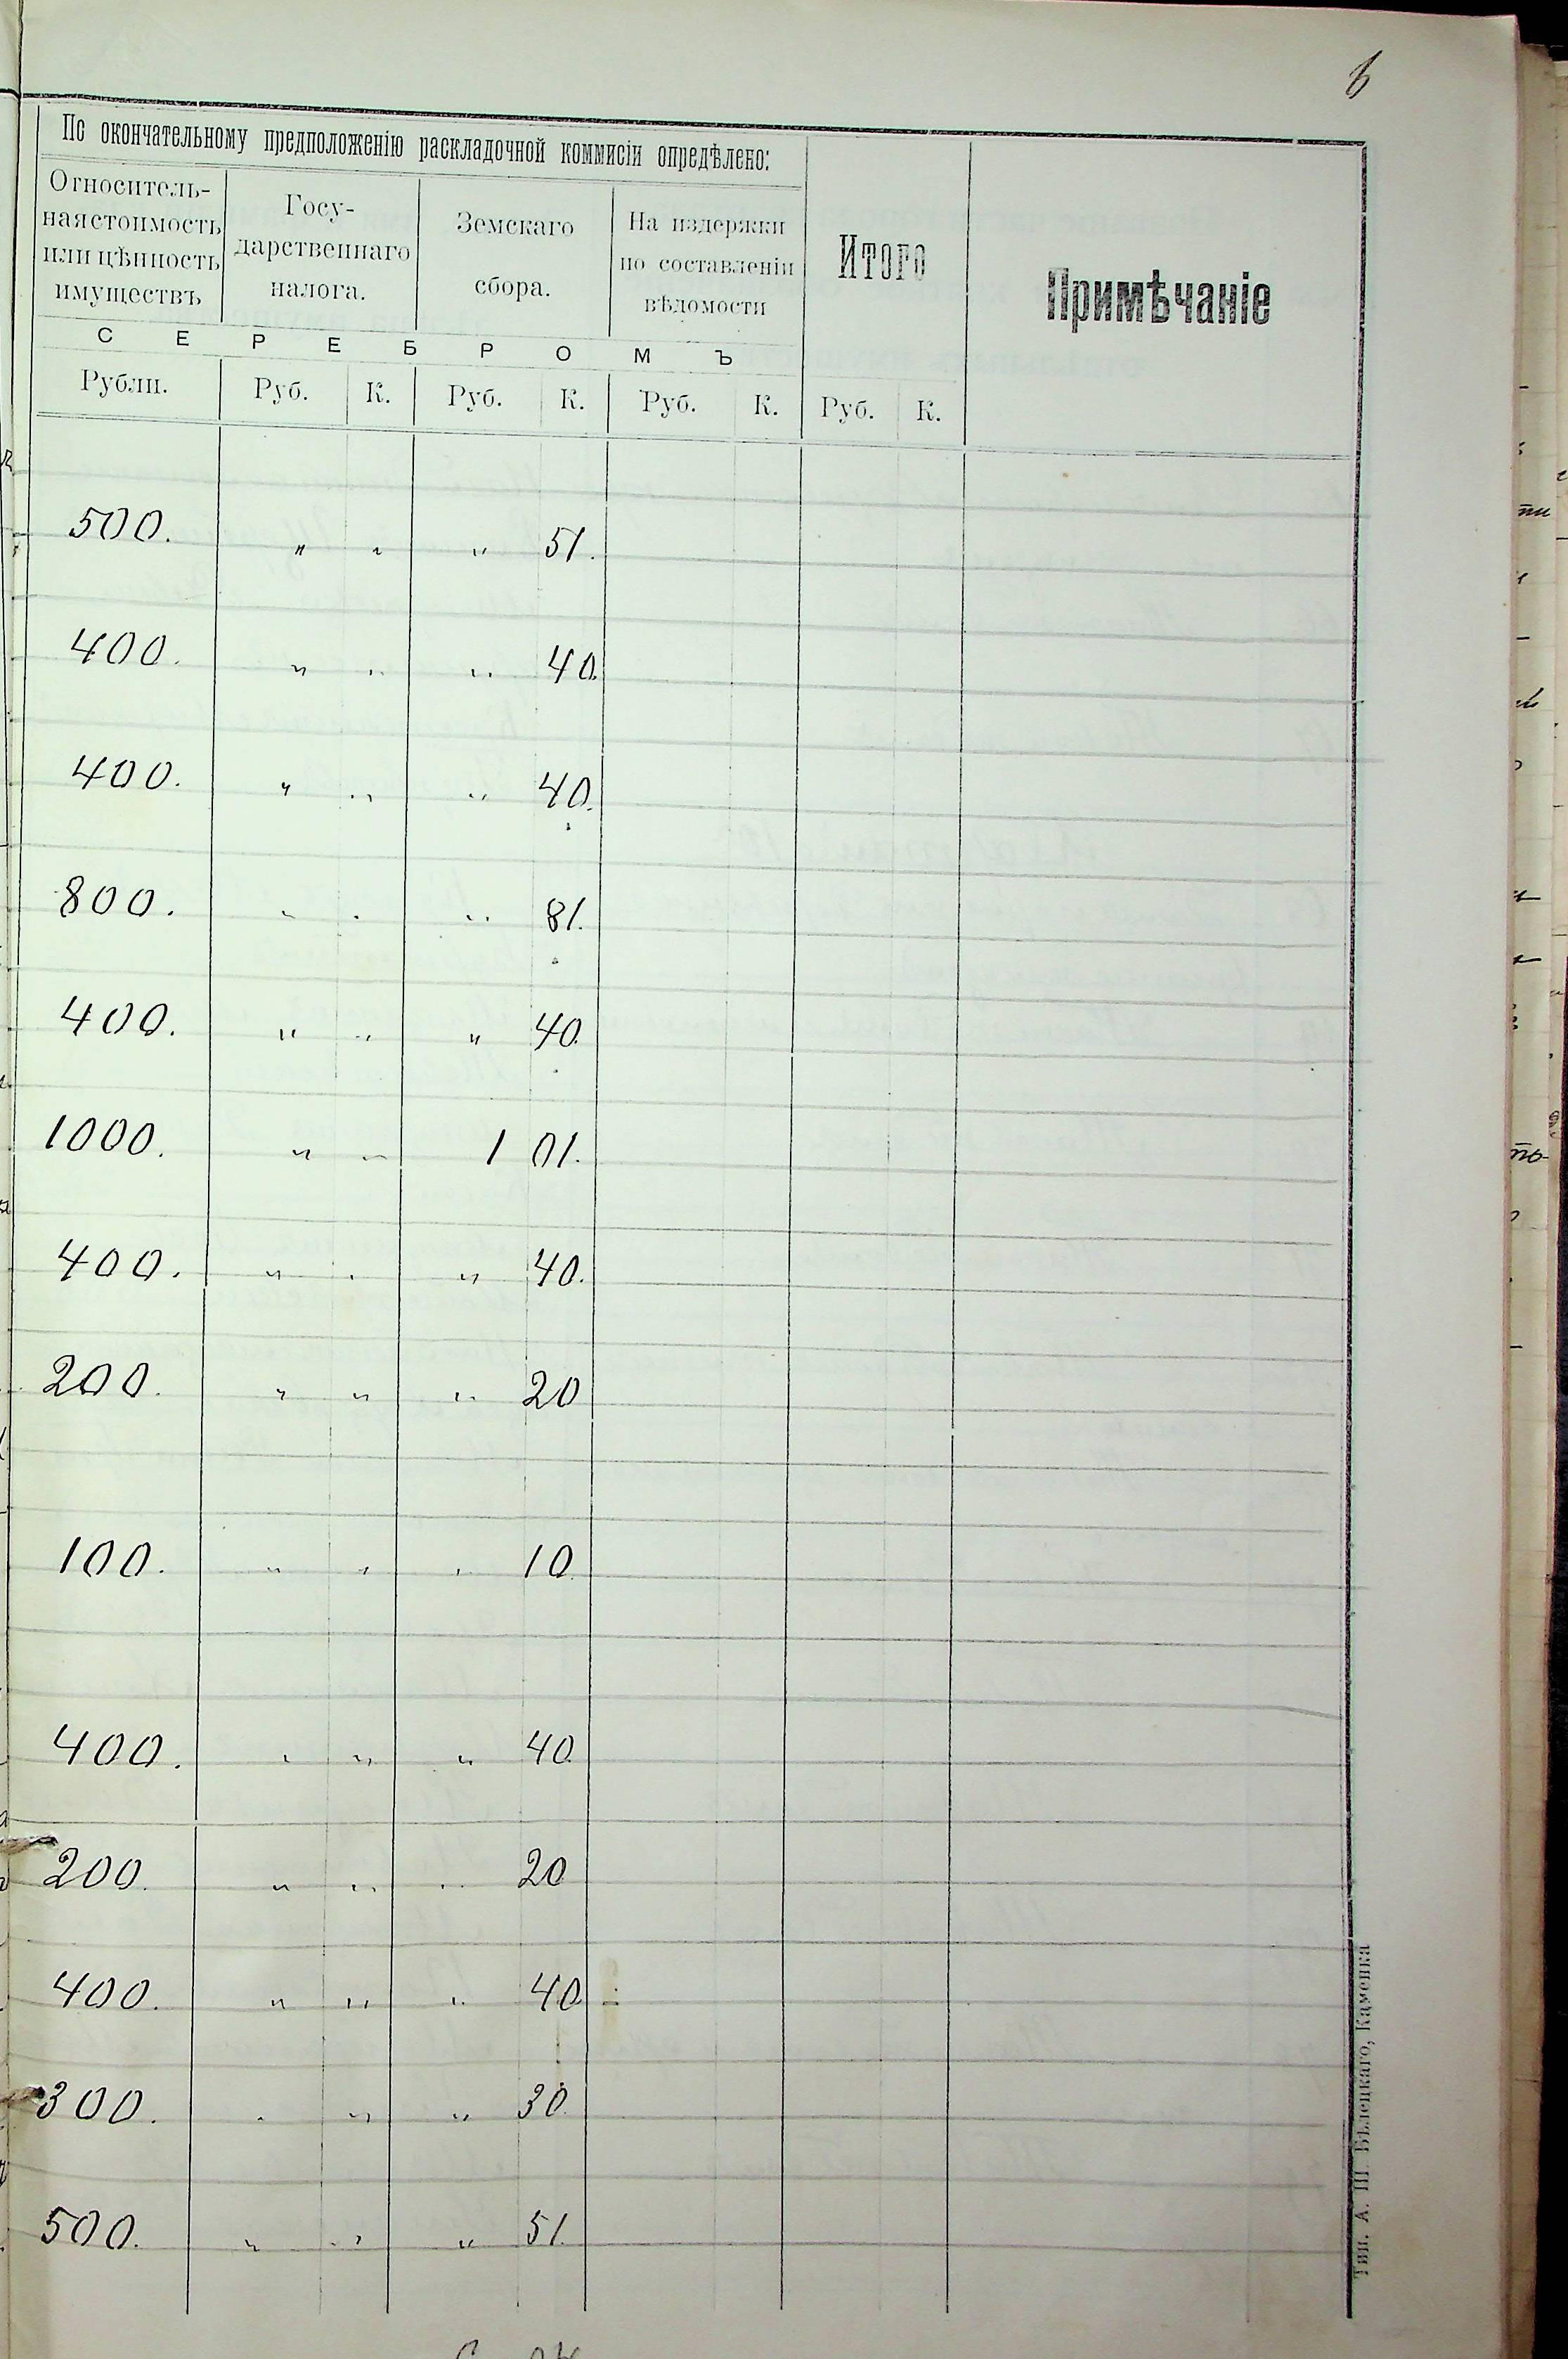 6
По окончательному предположенію раскладочной коммисіи опредѣлено:
Относитель-
ная стоимость
или цѣнность
имуществъ
Госу-
дарственнаго
налога.
Земскаго
сбора.
На издержки
по составленіи
вѣдомости
Итого
Примѣчаніе
С Е Р Е Б Р О М Ъ
Рубли. Руб. К. Руб. К. Руб. К. Руб. К.
500. " " " 51.
400. " " " 40.
400. " " " 40.
800. " " " 81.
400. " " " 40.
1000. " " 1 01.
400. " " " 40.
200. " " " 20
100. " " " 10.
400. " " " 40.
200. " " " 20
400. " " " 40.
300. " " " 30.
500. " " " 51.
Тип. А. Ш. Бѣлецкаго, Каменка